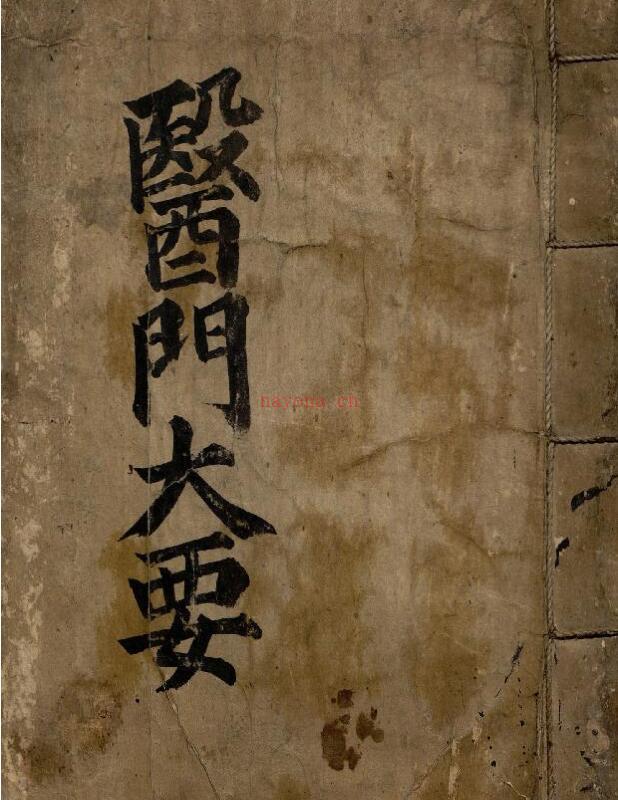 醫門大要
hayona.cn